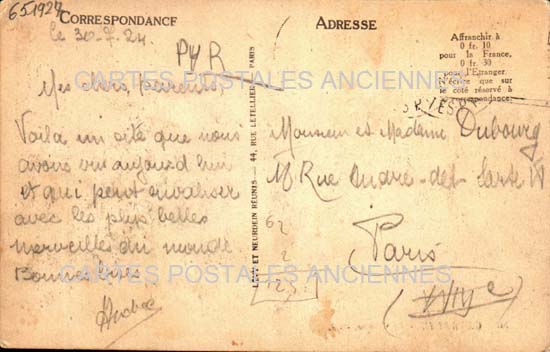 651927
CORRESPONDANCE
ADRESSE
le 30-7-24.
PYR
Affranchir à
0 fr. 10
pour la France,
0 fr. 30
pour l'Etranger
N'écrire que sur
le côté réservé à
la correspondance.
CARTES POSTALES ANCIENNES
Mes chers parents,
Voilà un site que nous
avons vu aujourd'hui
et qui peut rivaliser
avec les plus belles
merveilles du monde
LEVY ET NEURDEIN RÉUNIS — 44, RUE LETELLIER — PARIS
Monsieur et Madame Dubourg
Rue André-del Sarte
Paris
62
2
125
CARTES POSTALES ANCIENNES